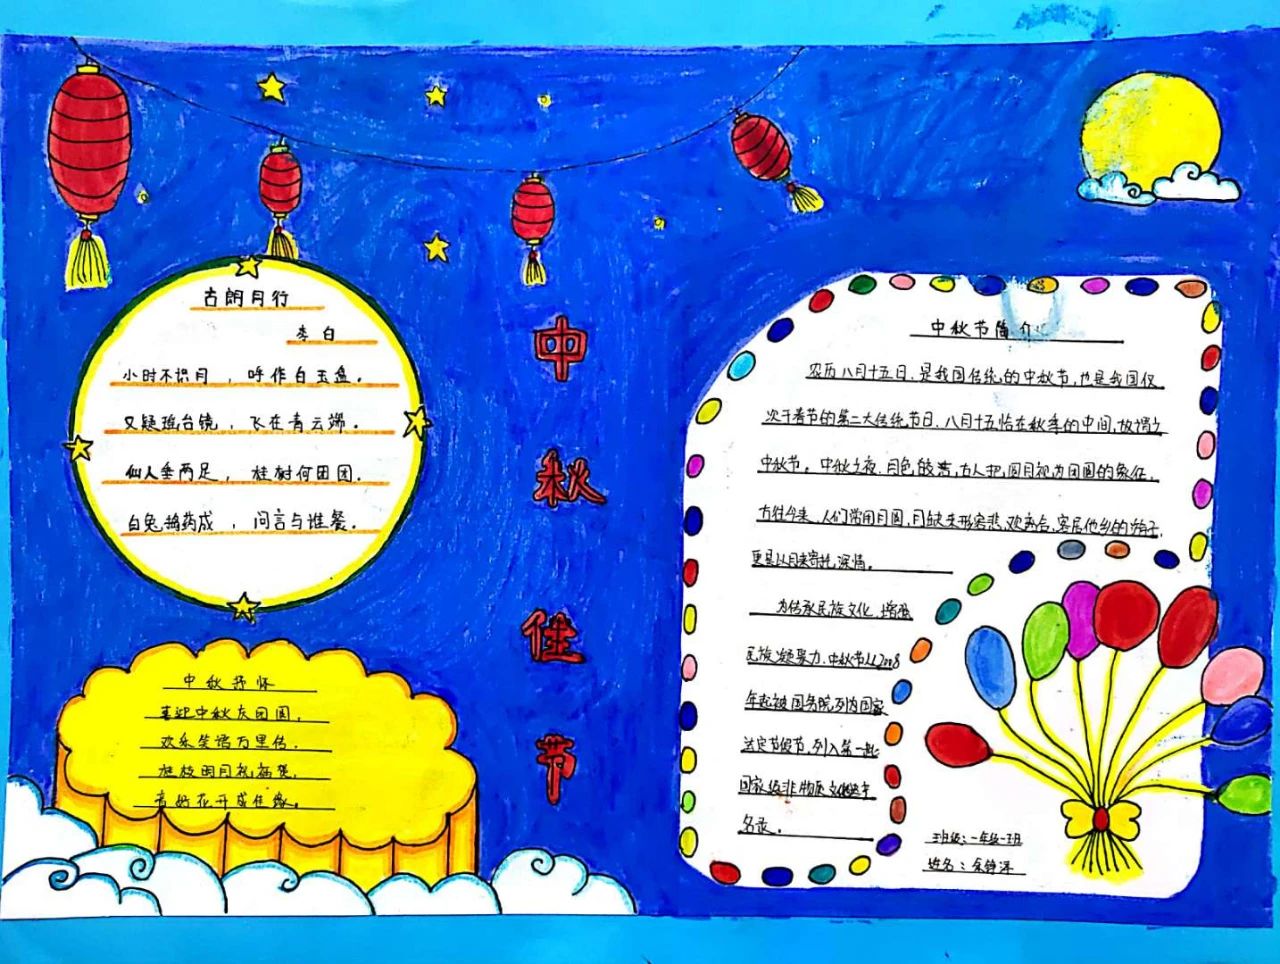 古朗月行
李白
小时不识月，呼作白玉盘。
又疑瑶台镜，飞在青云端。
仙人垂两足，桂树何团团。
白兔捣药成，问言与谁餐。
中秋佳节
中秋抒怀
喜迎中秋庆团圆，
欢乐笑语万里传。
桂枝明月祝福
花开成佳缘。
中秋节简介
农历八月十五日，是我国传统的中秋节，也是我国仅
次于春节的第二大传统节日，八月十五恰在秋季的中间，故谓之
中秋节。中秋之夜，月色皎洁，古人把圆月视为团圆的象征，
古往今来，人们常用月圆，月缺来形容悲欢离合，客居他乡的游子，
更是以月来寄托深情。
为传承民族文化，增强
民族凝聚力，中秋节从2008
年起被国务院列为国家
法定节假节，列入第一批
国家级非物质文化遗产
名录。
班级：一年级一班
姓名：